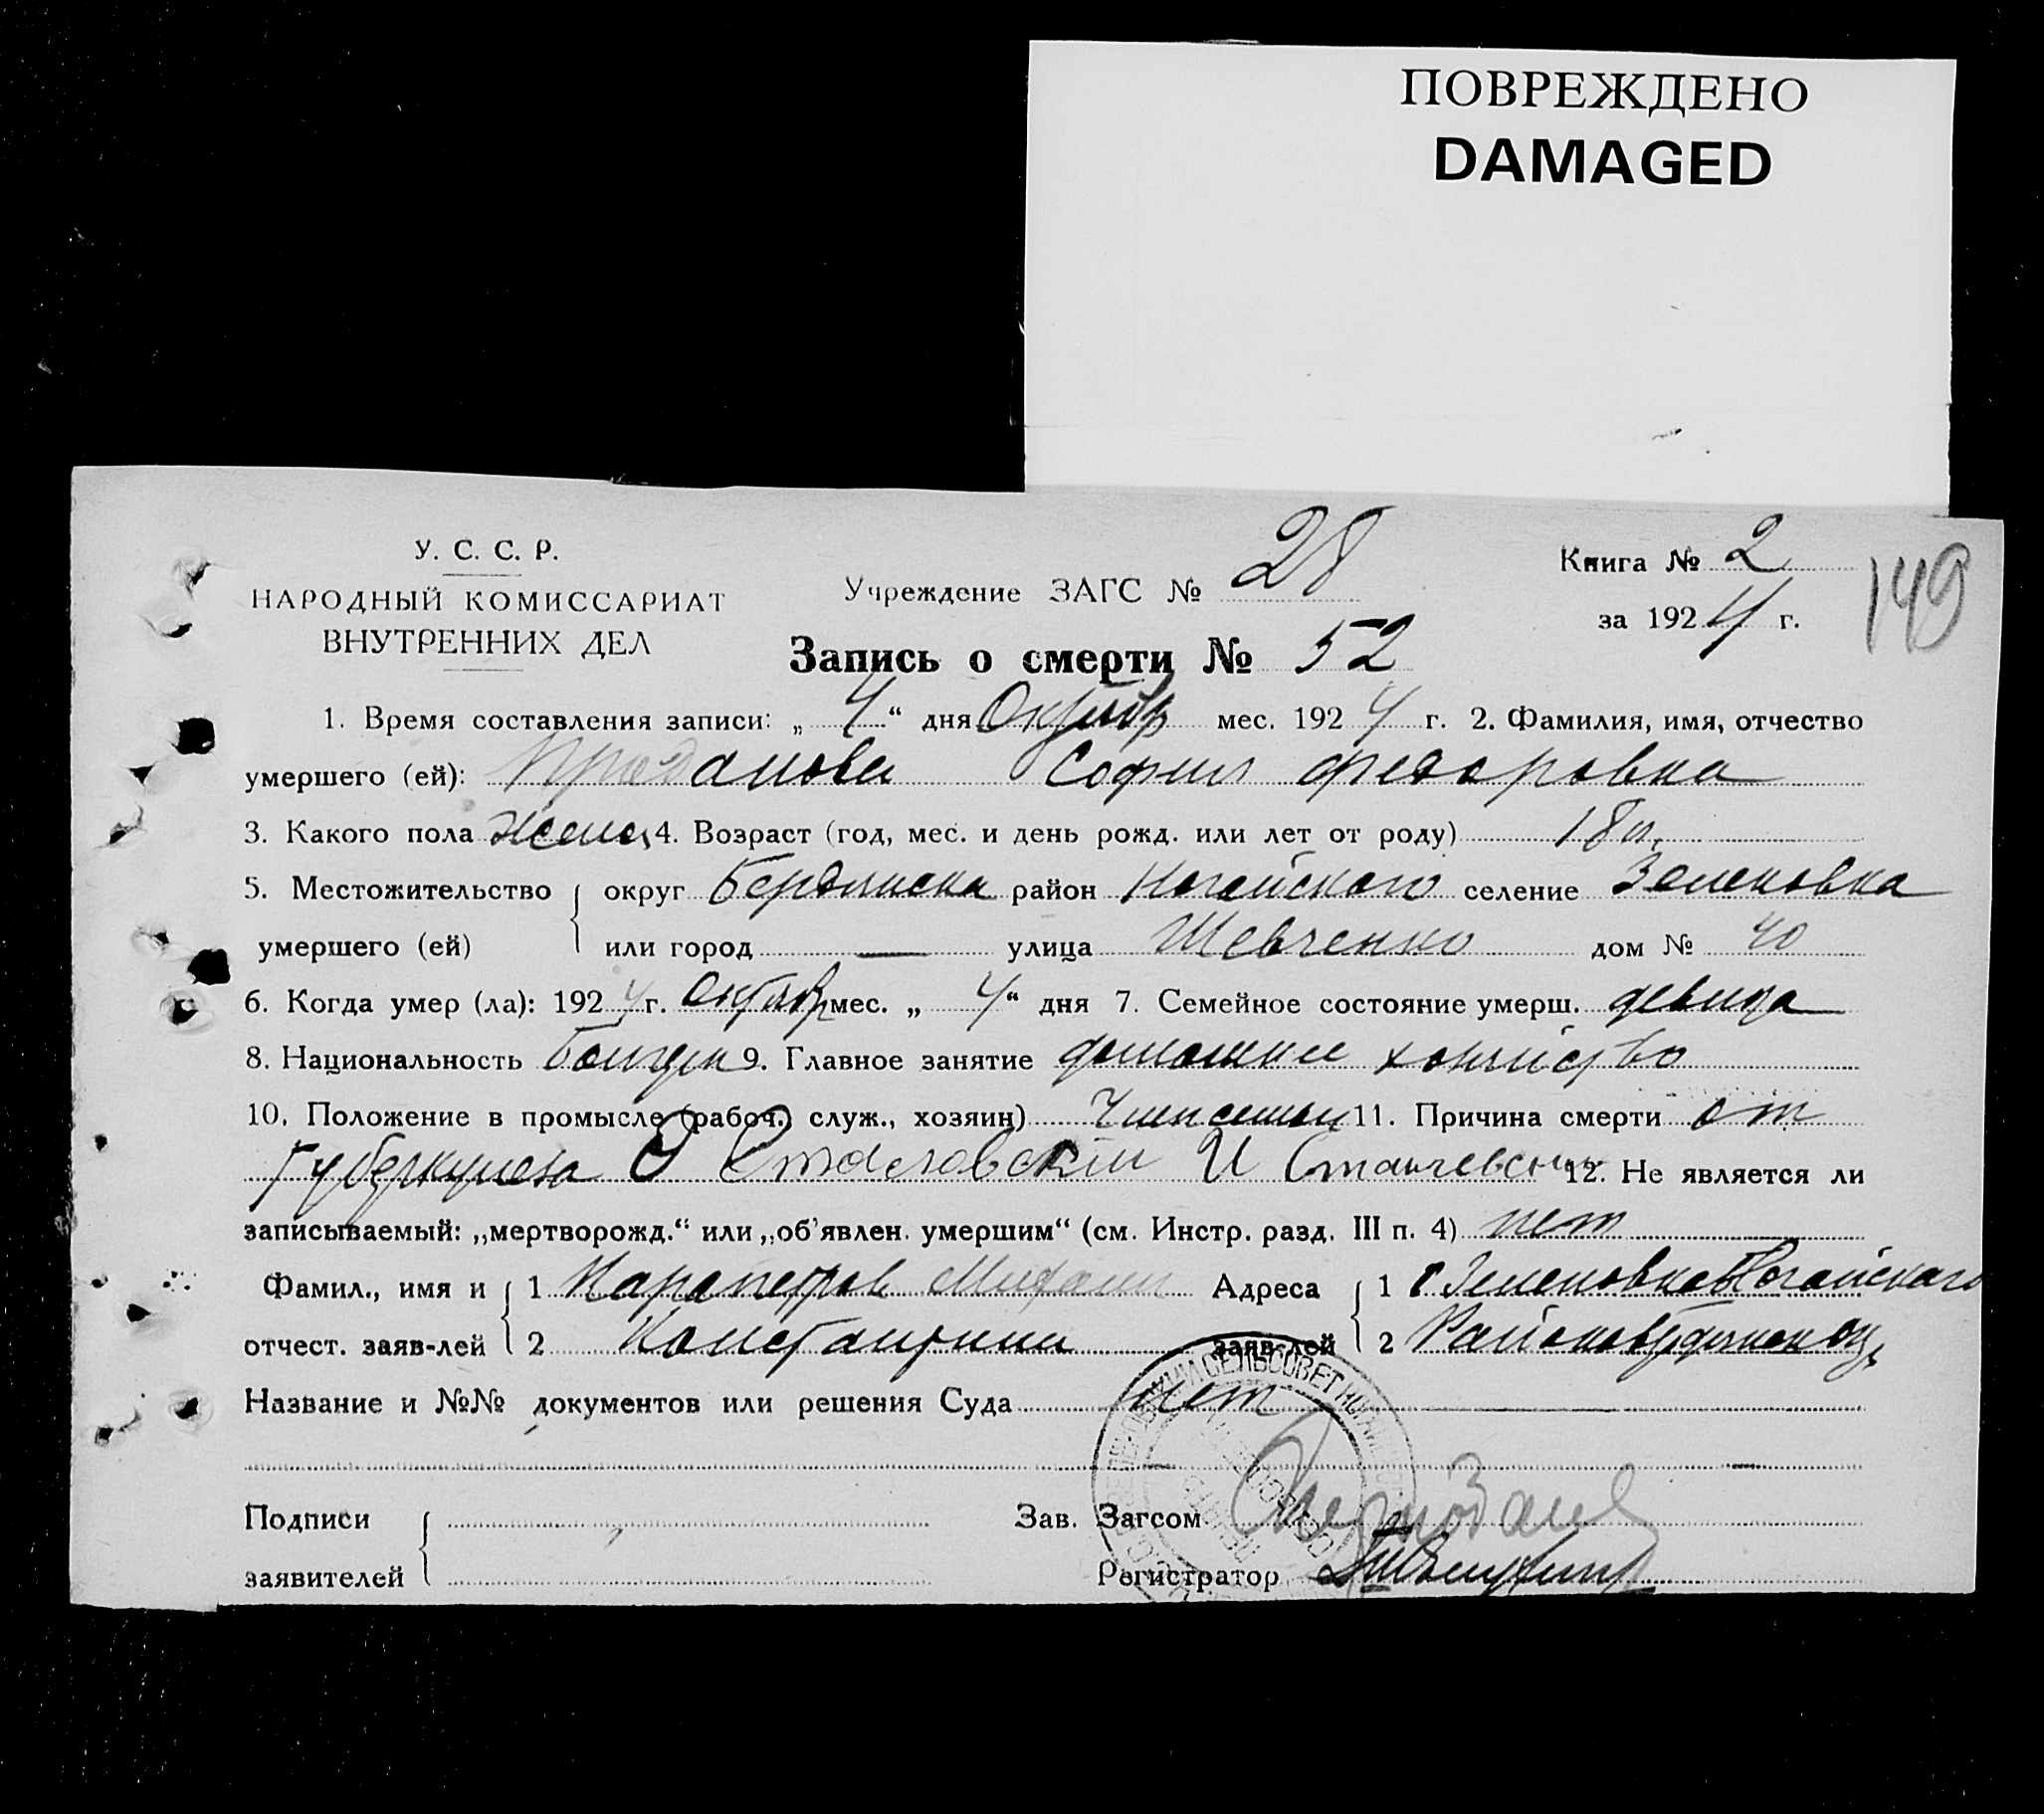 ПОВРЕЖДЕНО
DAMAGED
У. С. С. Р.
НАРОДНЫЙ КОМИССАРИАТ
ВНУТРЕННИХ ДЕЛ
Учреждение ЗАГС № 28
Книга № 2
за 1924 г.
149
Запись о смерти № 52
1. Время составления записи: „ 4 “ дня Октября мес. 1924 г. 2. Фамилия, имя, отчество
умершего (ей): Проданова София Федоровна
3. Какого пола Женс 4. Возраст (год, мес. и день рожд. или лет от роду) 18 л.
5. Местожительство округ Бердянска район Ногайского селение Зеленовка
умершего (ей) или город — улица Шевченко дом № 40
6. Когда умер (ла): 1924 г. Октябр мес. „ 4 “ дня 7. Семейное состояние умерш. девица
8. Национальность Болгар 9. Главное занятие домашнее хозяйство
10. Положение в промысле (рабоч., служ., хозяин) Член семьи 11. Причина смерти от
Туберкулеза 12. Не является ли
записываемый: „мертворожд.“ или „об'явлен. умершим“ (см. Инстр. разд. III п. 4) нет
Фамил., имя и 1 Карапетров Михаил Адреса 1 Зеленовка Ногайского
отчест. заяв-лей 2 Константин заяв-лей 2
Название и №№ документов или решения Суда нет
Подписи Зав. Загсом
заявителей Регистратор